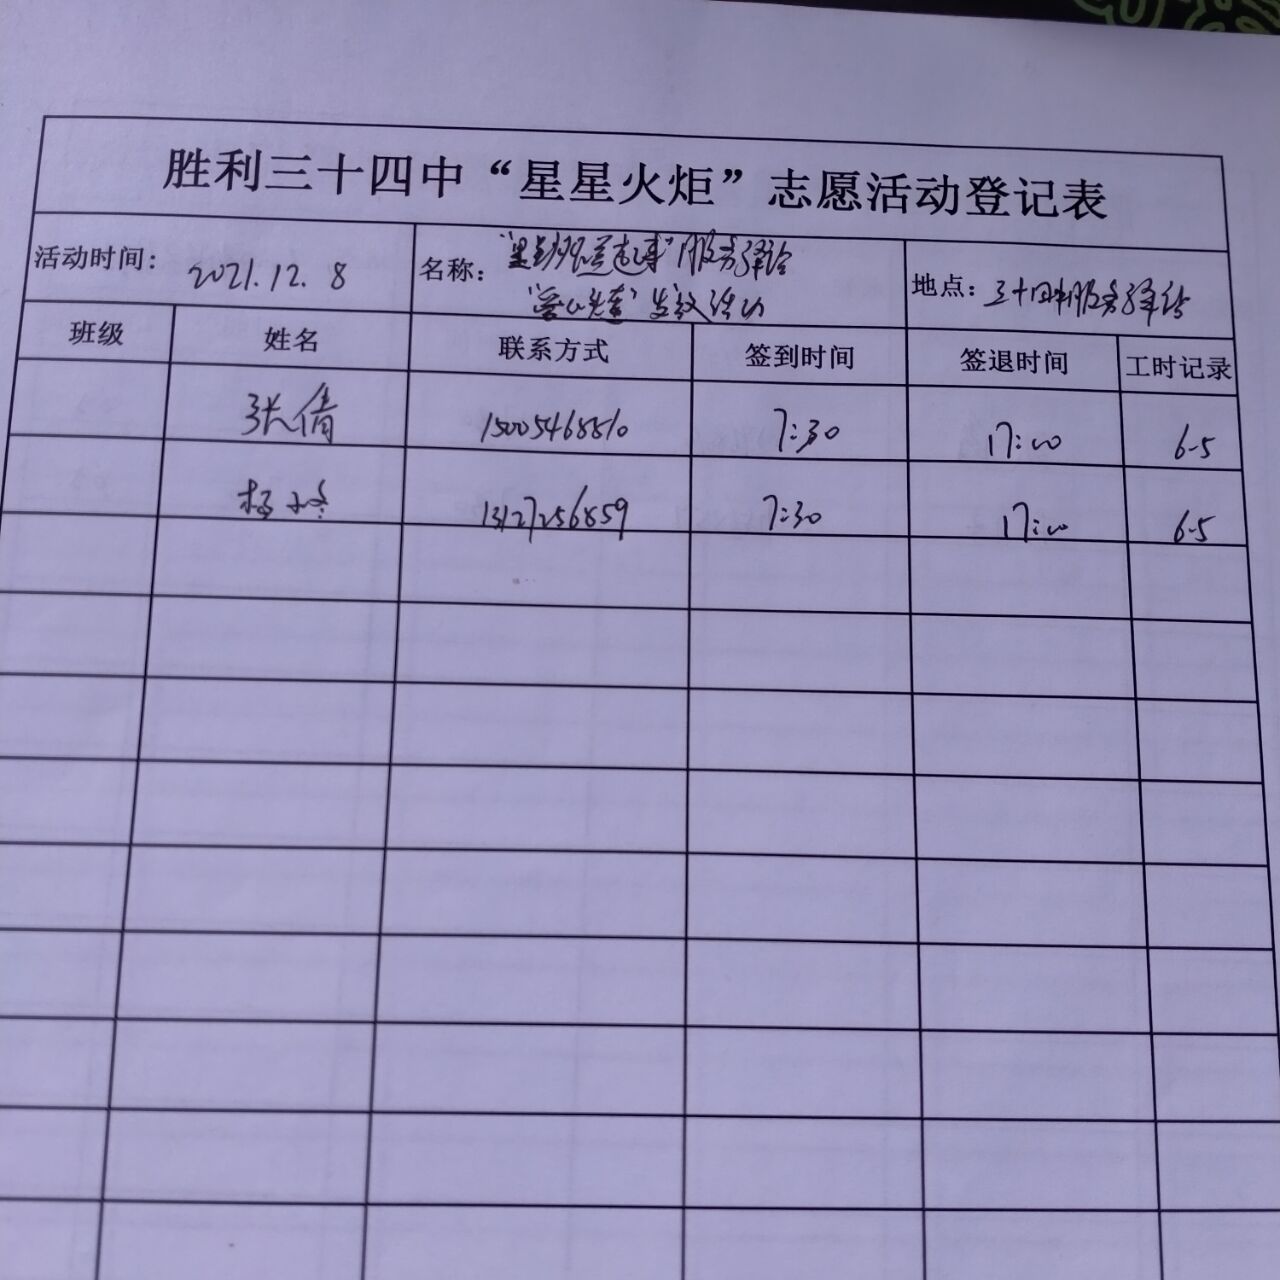 胜利三十四中“星星火炬”志愿活动登记表
活动时间： 2021.12.8 名称： 服务驿站 地点： 三十四中服务驿站
活动
班级 姓名 联系方式 签到时间 签退时间 工时记录
张倩 15005468810 7:30 17:00 6.5
杨 13127256859 7:30 17:00 6.5